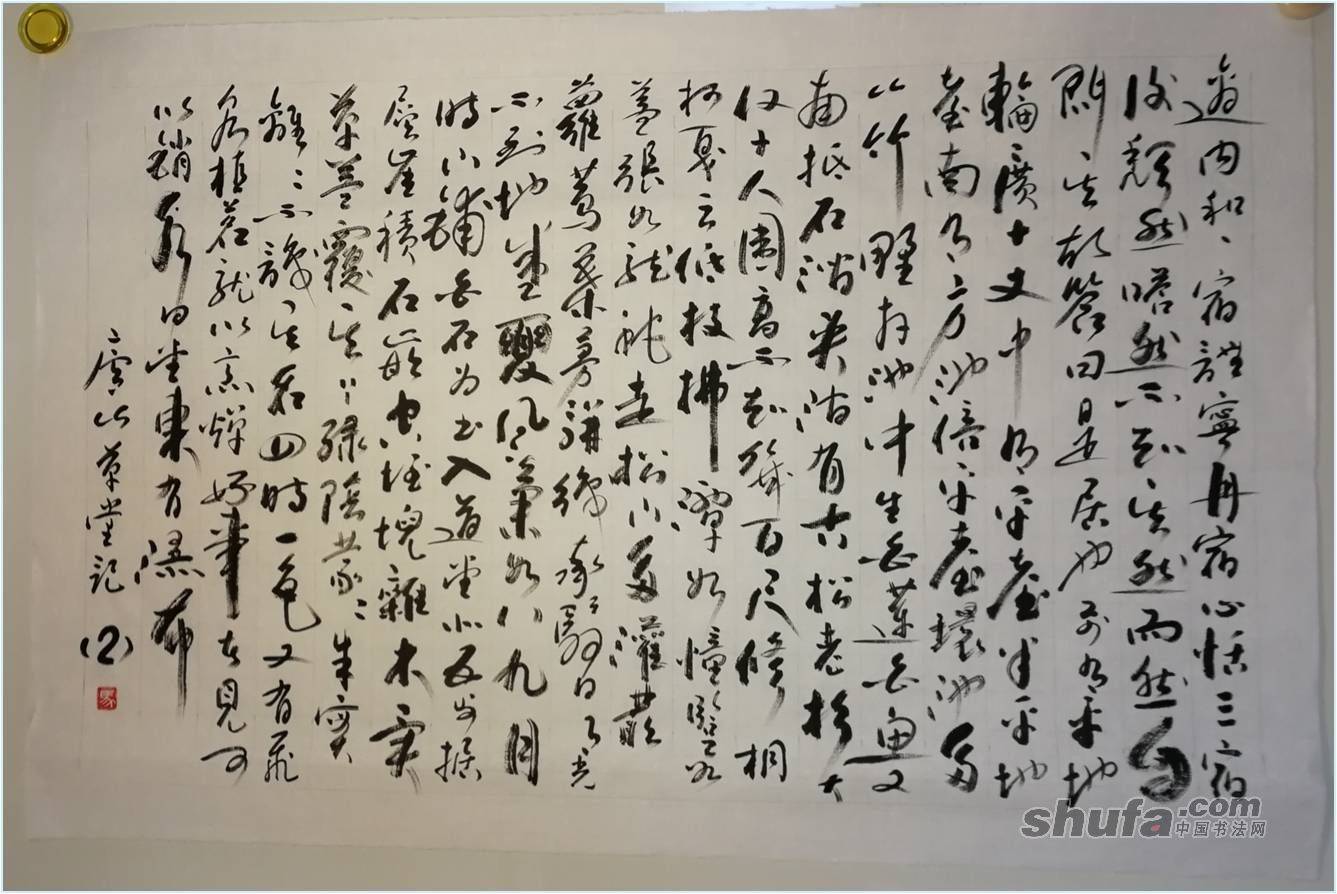 適内和一宿體寧再宿心恬三宿
後頹然嗒然不知其然而然自
問其故答曰是居也前有平地
輪廣十丈中有平臺半平地
臺南有方池倍平臺環池多
山竹野卉池中生白蓮白魚又
南抵石澗夾澗有古松老杉大
仅十人圍高不知幾百尺修桐
柯戛云低枝拂潭如幢豎如
蓋張如龍蛇走松下多灌叢
蘿蔦葉蔓駢織承翳日月光
不到地盛夏風氣如八九月
時下鋪白石为出入道堂北五步据
層崖積石嵌空垤塊雜木異
草蓋覆其上綠陰蒙〻朱實
離〻不識其名四時一色又有飛
泉植茗就以烹燀好事者見可
以銷永日堂東有瀑布
庐山草堂記 (2)
shufa.com
中国书法网